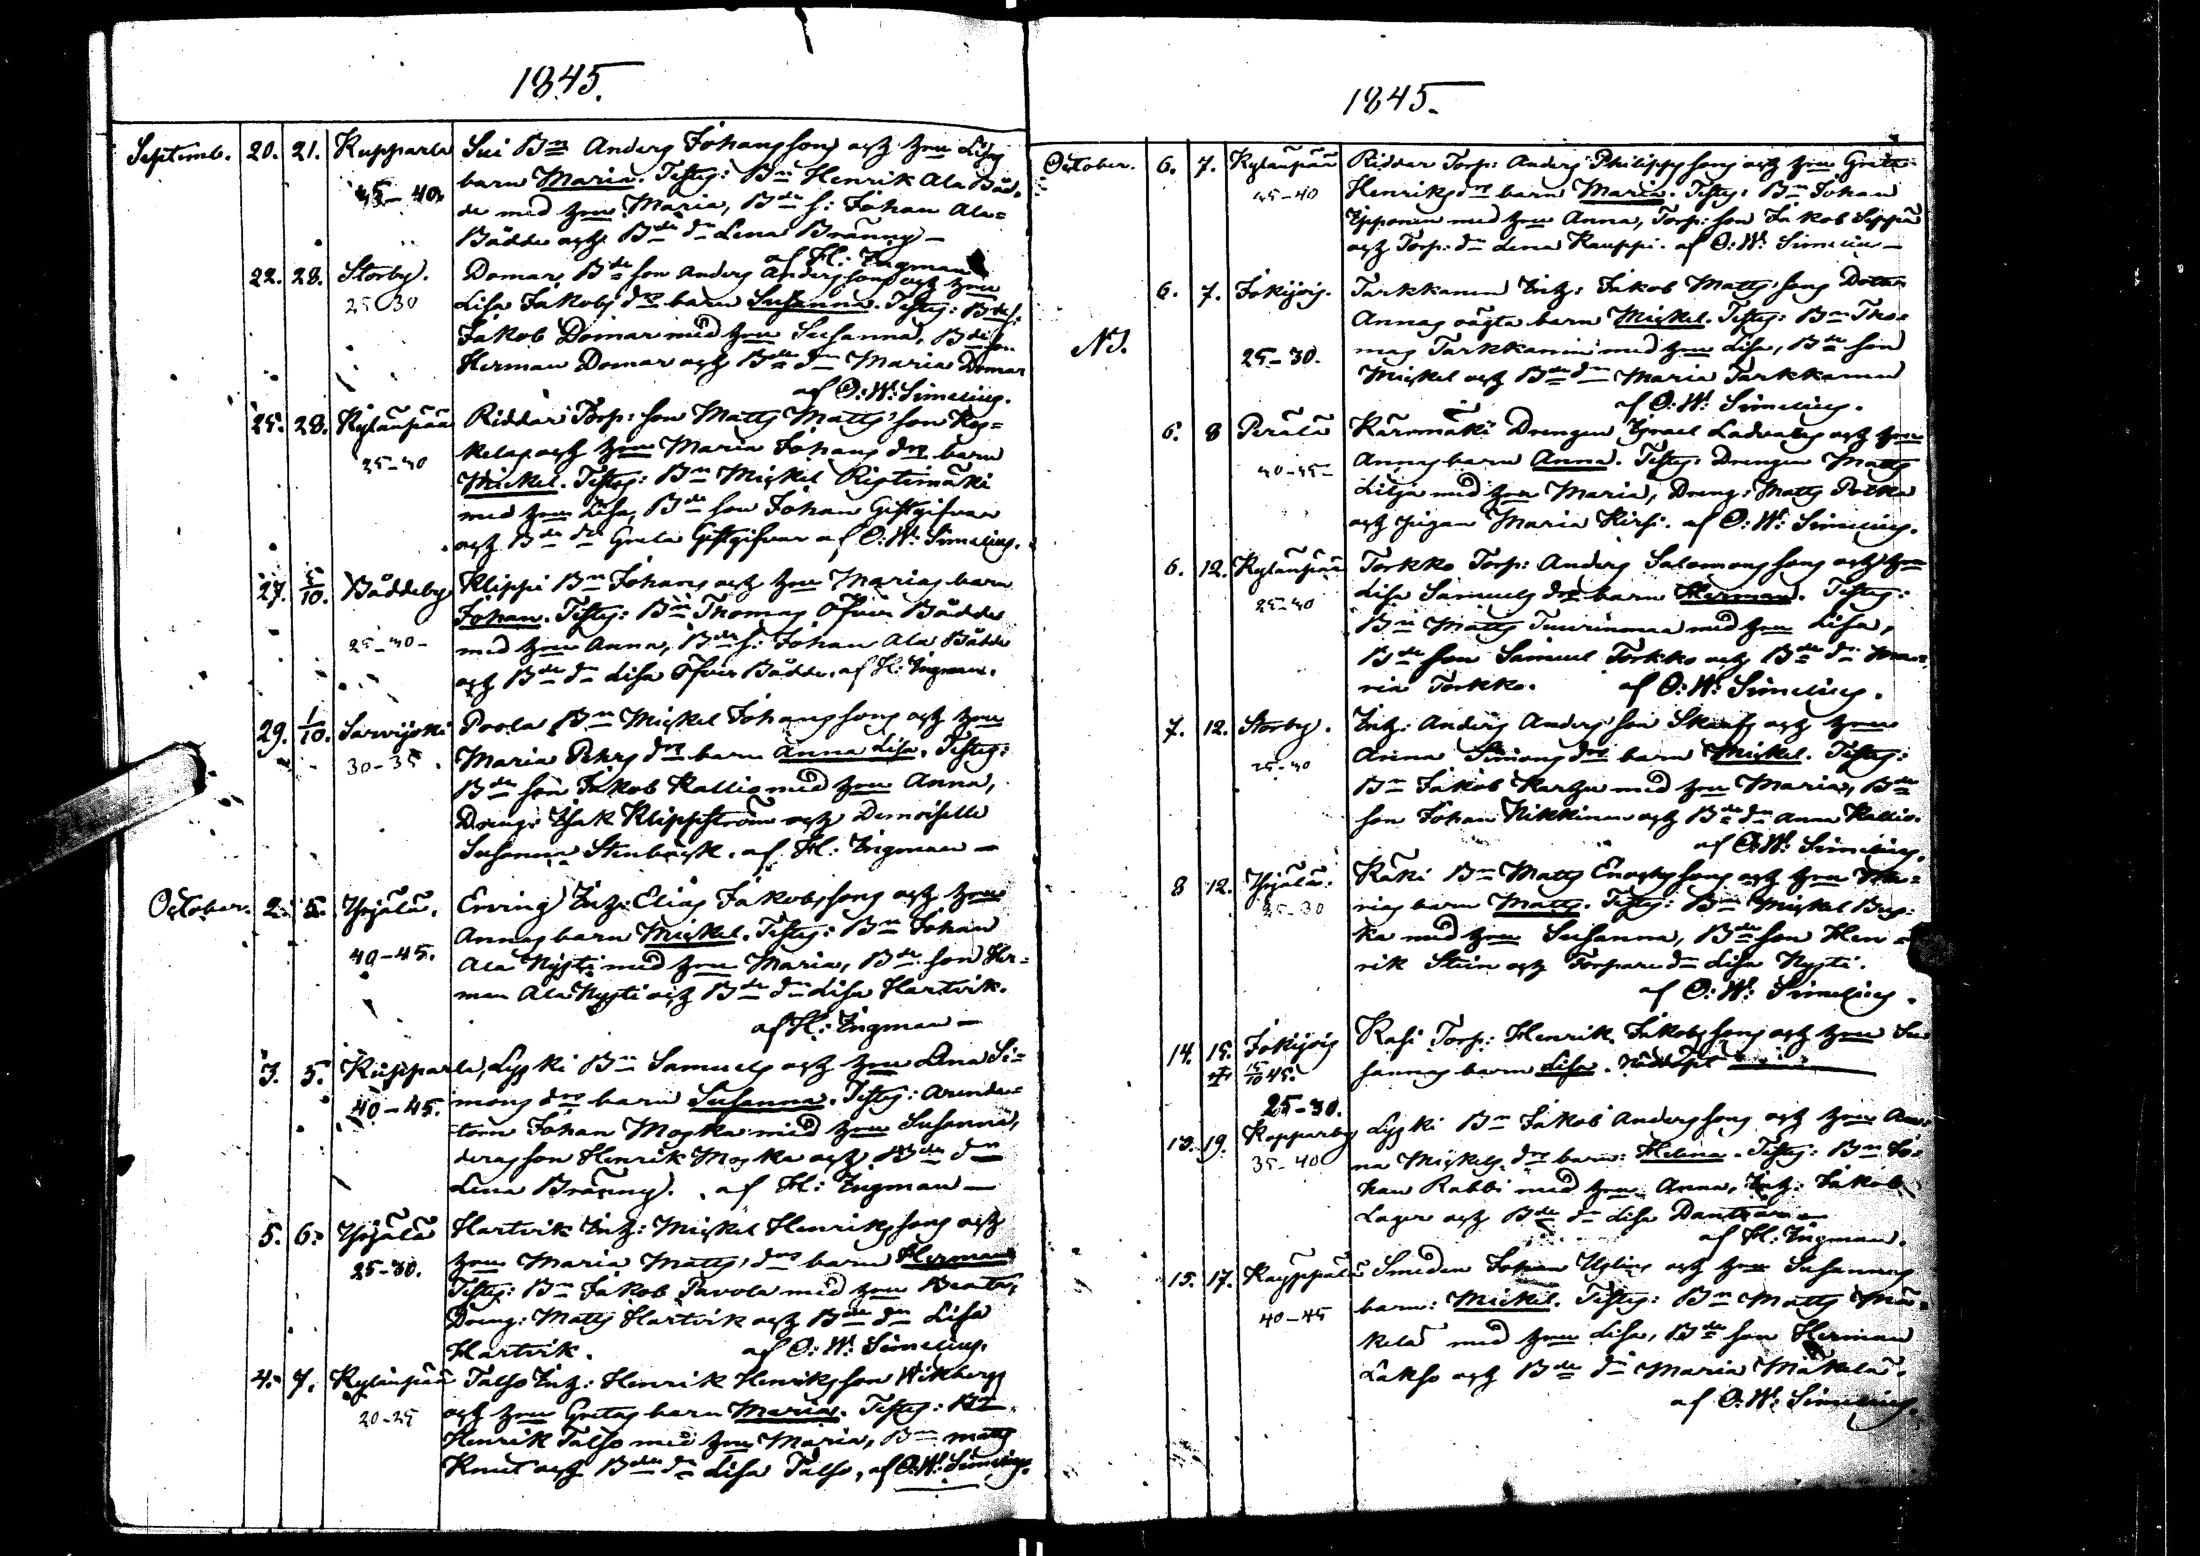 1845.
Septemb. 20. 21. Kupparla Sui Bn Anders Johansson och hnu Lisas
45-40. barn Maria. Testes: Bn Henrik Ala Båd,
de med hnu Maria, Bde s: Johan Ala=
Bådde och Bde dn Lena Bränny —
af H: Ingman
22. 28. Storby. Domar Bde son Anders Andersson och hnu
25 30 Lisa Jakobs drs barn Susanna. Testes: Bde s:
Jakob Domar med hnu Susanna, Bde son
Herman Domar och Bde dn Maria Domar
af O: W: Simelius.
25. 28. Kylänpää Riddar Torp: son Matts Matts son Kos=
35-40 kelas och hnu Maria Johans drs barn
Mickel. Testes: Bn Mickel Ristimäki
med hnu Lisa, Bde son Johan Gästgifvar
och Bde dr Greta Gästgifvar af O: W: Simelius.
27. 5/10. Båddeby Klippi Bn Johans och hnu Marias barn
Johan. Testes: Bn Thomas Öfver Bådde
25-30- med hnu Anna, Bde s: Johan Ala Bådde
och Bde dn Lisa Öfver Bådde. af H: Ingman.
29. 1/10. Sarvijoki Poola Bn Mickel Johanssons och hnu
30-35. Maria Pehrs drs barn Anna Lisa. Testes:
Bde son Jakob Kallio med hnu Anna,
Dreng: Isak Klippström och Demoiselle
Susanna Stenbäck. af H: Ingman —
October. 2. 5. Ypäjä Erving Inh: Elias Jakobssons och hnu
Annas barn Mickel. Testes: Bn Johan
40-45. Ala Nysti med hnu Maria, Bde son Her=
man Ala Nysti och Bde dn Lisa Hartvik.
af H: Ingman —
3. 5. Kupparla, Lyski Bn Samuels och hnu Lena Si=
40-45. mons drs barn Susanna. Testes: Arenda=
torn Johan Moska med hnu Susanna,
deras son Henrik Moska och Bde dn
Lena Bränny. af H: Ingman —
5. 6. Hartvik Inh: Mickel Henrikssons och
25-30. hnu Maria Matts drs barn Herman
Testes: Bn Jakob Pavola med hnu Beata,
Dreng: Matts Hartvik och Bde dn Lisa
Hartvik. af O: W: Simelius.
4. 7. Kylänpää Talso Inh: Henrik Henriksson Wikberg
20-25 och hnu Gretas barn Maria. Testes: Bn
Henrik Talso med hnu Maria, Bn Matts
Knut och Bde dn Lisa Talso, af O: W: Simelius.
1845.
October. 6. 7. Kylänpää Riddar Torp: Anders Philippssons och hnu Greta
35-40 Henriks drs barn Maria. Testes: Bn Johan
Ipponen med hnu Anna, Torp: son Jakob Seppä
och Torp: dn Lena Kauppi. af O: W: Simelius —
6. 7. Jokijvis. Tarkkanen Inh: Jakob Matts sons Dotter
Annas oägta barn Mickel. Testes: Bn Tho=
N3. 25-30. mas Tarkkanen med hnu Lisa, Bde son
Mickel och Bde dn Maria Tarkkanen
af O: W: Simelius.
6. 8 Perälä Kärmäki Drengen Israel Ladvalas och hnu
40-45- Annas barn Anna. Testes: Drengen Matts
Lilja med hnu Maria, Dreng: Matts
och pigan Maria Hirsi. af O: W: Simelius.
6. 12. Kylänpää Torkko Torp: Anders Salomonssons och hnu
25-30 Lisa Samuels drs barn Herman. Testes:
Bn Matts Tuurinmaa med hnu Lisa,
Bde son Samuel Torkko och Bde dn Ma=
ria Torkko. af O: W: Simelius.
7. 12. Storby. Inh: Anders Anders son Skaufs och hnu
25-30 Anna Simons drs barn Mickel. Testes:
Bn Jakob Karhu med hnu Maria, Bde
son Johan Hikkinen och Bde dn Anna Kallio.
af O: W: Simelius.
8 12. Räki Bn Matts Enochssons och hnu Ma=
25-30 rias barn Matts. Testes: Bn Mickel Bus=
ka med hnu Susanna, Bde son Hen=
rik Stein och Torpare dn Lisa Nysti.
af O: W: Simelius.
14. 15. Jokijvis Kasi Torp: Henrik Jakobssons och hnu Su
† 15/10 45. sannas barn Lisa. Nöddöpt
25-30.
13. 19. Kopparby Lyski Bn Jakob Anderssons och hnu An=
35-40 na Mickels drs barn: Helena. Testes: Bn Jo=
han Rabbi med hnu Anna, Inh: Jakob
Lager och Bde dn Lisa
af H: Ingman.
15. 17. Kayppälä Smeden Johan Uglins och hnu Susannas
40-45 barn: Mickel. Testes: Bn Matts Mä=
kelä med hnu Lisa, Bde son Herman
Lakso och Bde dn Maria Mäkelä.
af O: W: Simelius.